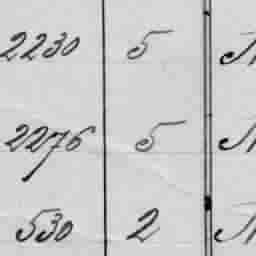 2230 5
2276 5
530 2